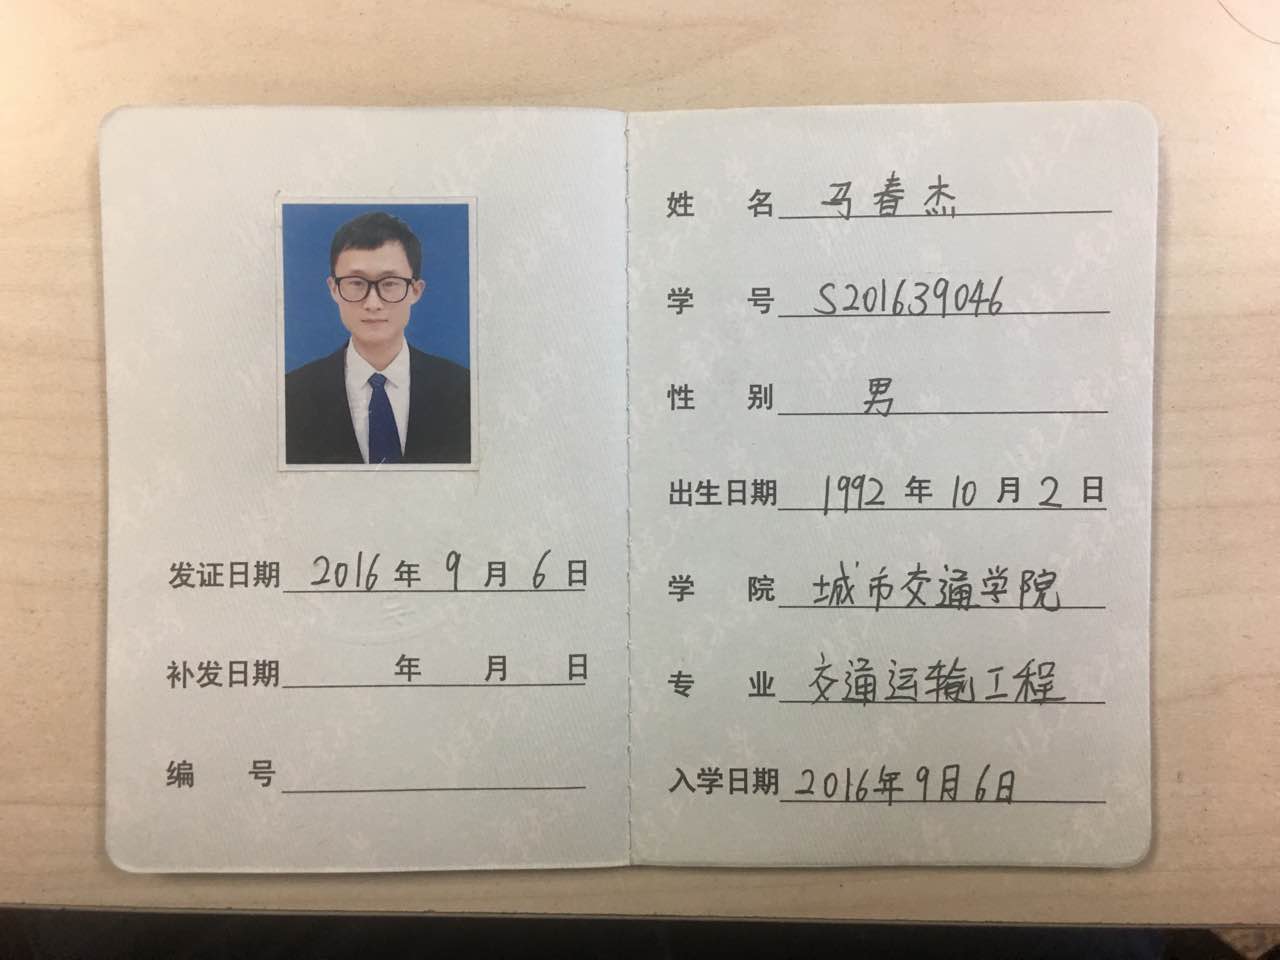 发证日期 2016 年 9 月 6 日
补发日期 年 月 日
编号
姓名 马春杰
学号 S201639046
性别 男
出生日期 1992 年 10 月 2 日
学院 城市交通学院
专业 交通运输工程
入学日期 2016年9月6日